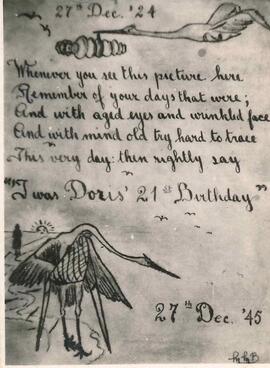 27th Dec. '24
Whenever you see this picture here
Remember of your days that were;
And with aged eyes and wrinkled face
And with mind old try hard to trace
This very day: then rightly say
"I was Doris' 21st Birthday"
27th Dec. '45